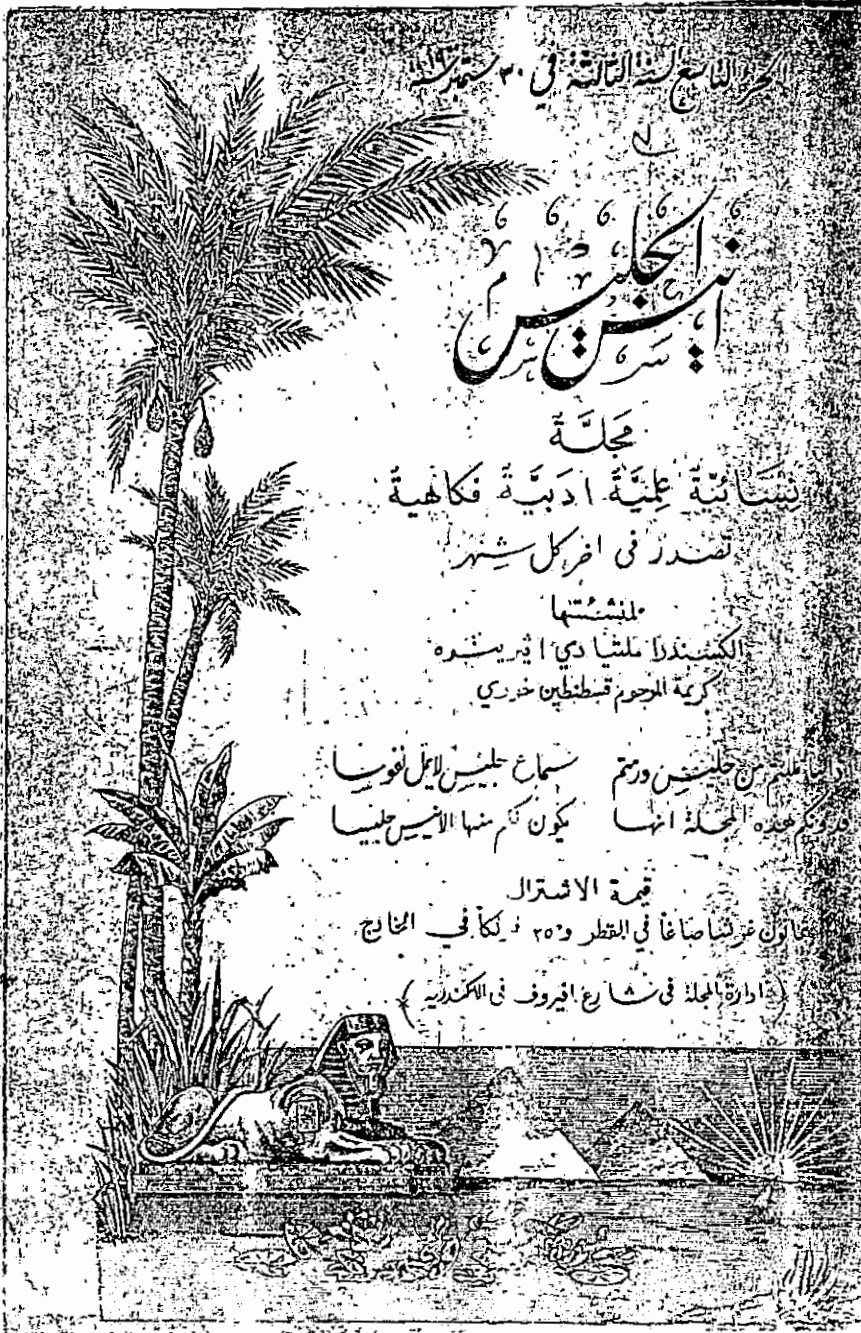 الجزء التاسع السنة الثالثة في ٣٠ سبتمبر سنة
انيس الجليس
مَجلَّة
نِسَائيَّة عِلميَّة ادَبيَّة فكاهية
تصدر في اخر كل شهر
لمنشئتها
الكسندرا ملتيادي افيرينوه
كريمة المرحوم قسطنطين خوري
مللتم من جليس ورمتم سماع جليس لا يمل نفوسا
فدونكم هذه المجلة انها يكون لكم منها الانيس جليسا
قيمة الاشتراك
غرشا صاغا في القطر و٢٥ فرنكا في الخارج
(ادارة المجلة في شارع افيروف في الاسكندرية)